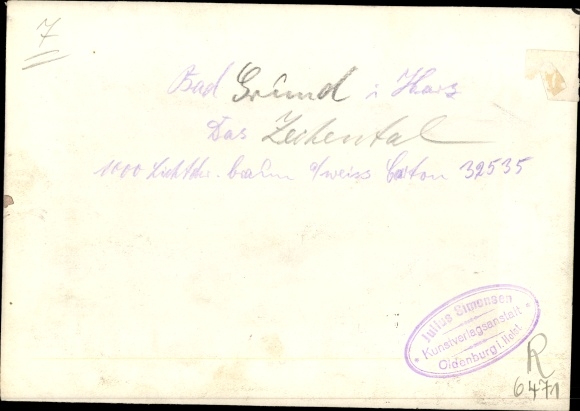 7
Bad Grund i Harz
Das Zechental
1000 Lichtdr. braun a/weiss Carton 32535
Julius Simonsen
Kunstverlagsanstalt
Oldenburg i. Holst.
R
6471